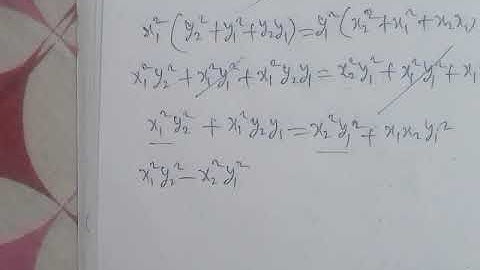 x₁²(y₂²+y₁²+y₂y₁)=y₁²(x₂²+x₁²+x₂x₁)
x₁²y₂²+x₁²y₁²+x₁²y₂y₁=x₂²y₁²+x₁²y₁²+x₁
x₁²y₂²+x₁²y₂y₁=x₂²y₁²+x₁x₂y₁²
x₁²y₂²-x₂²y₁²